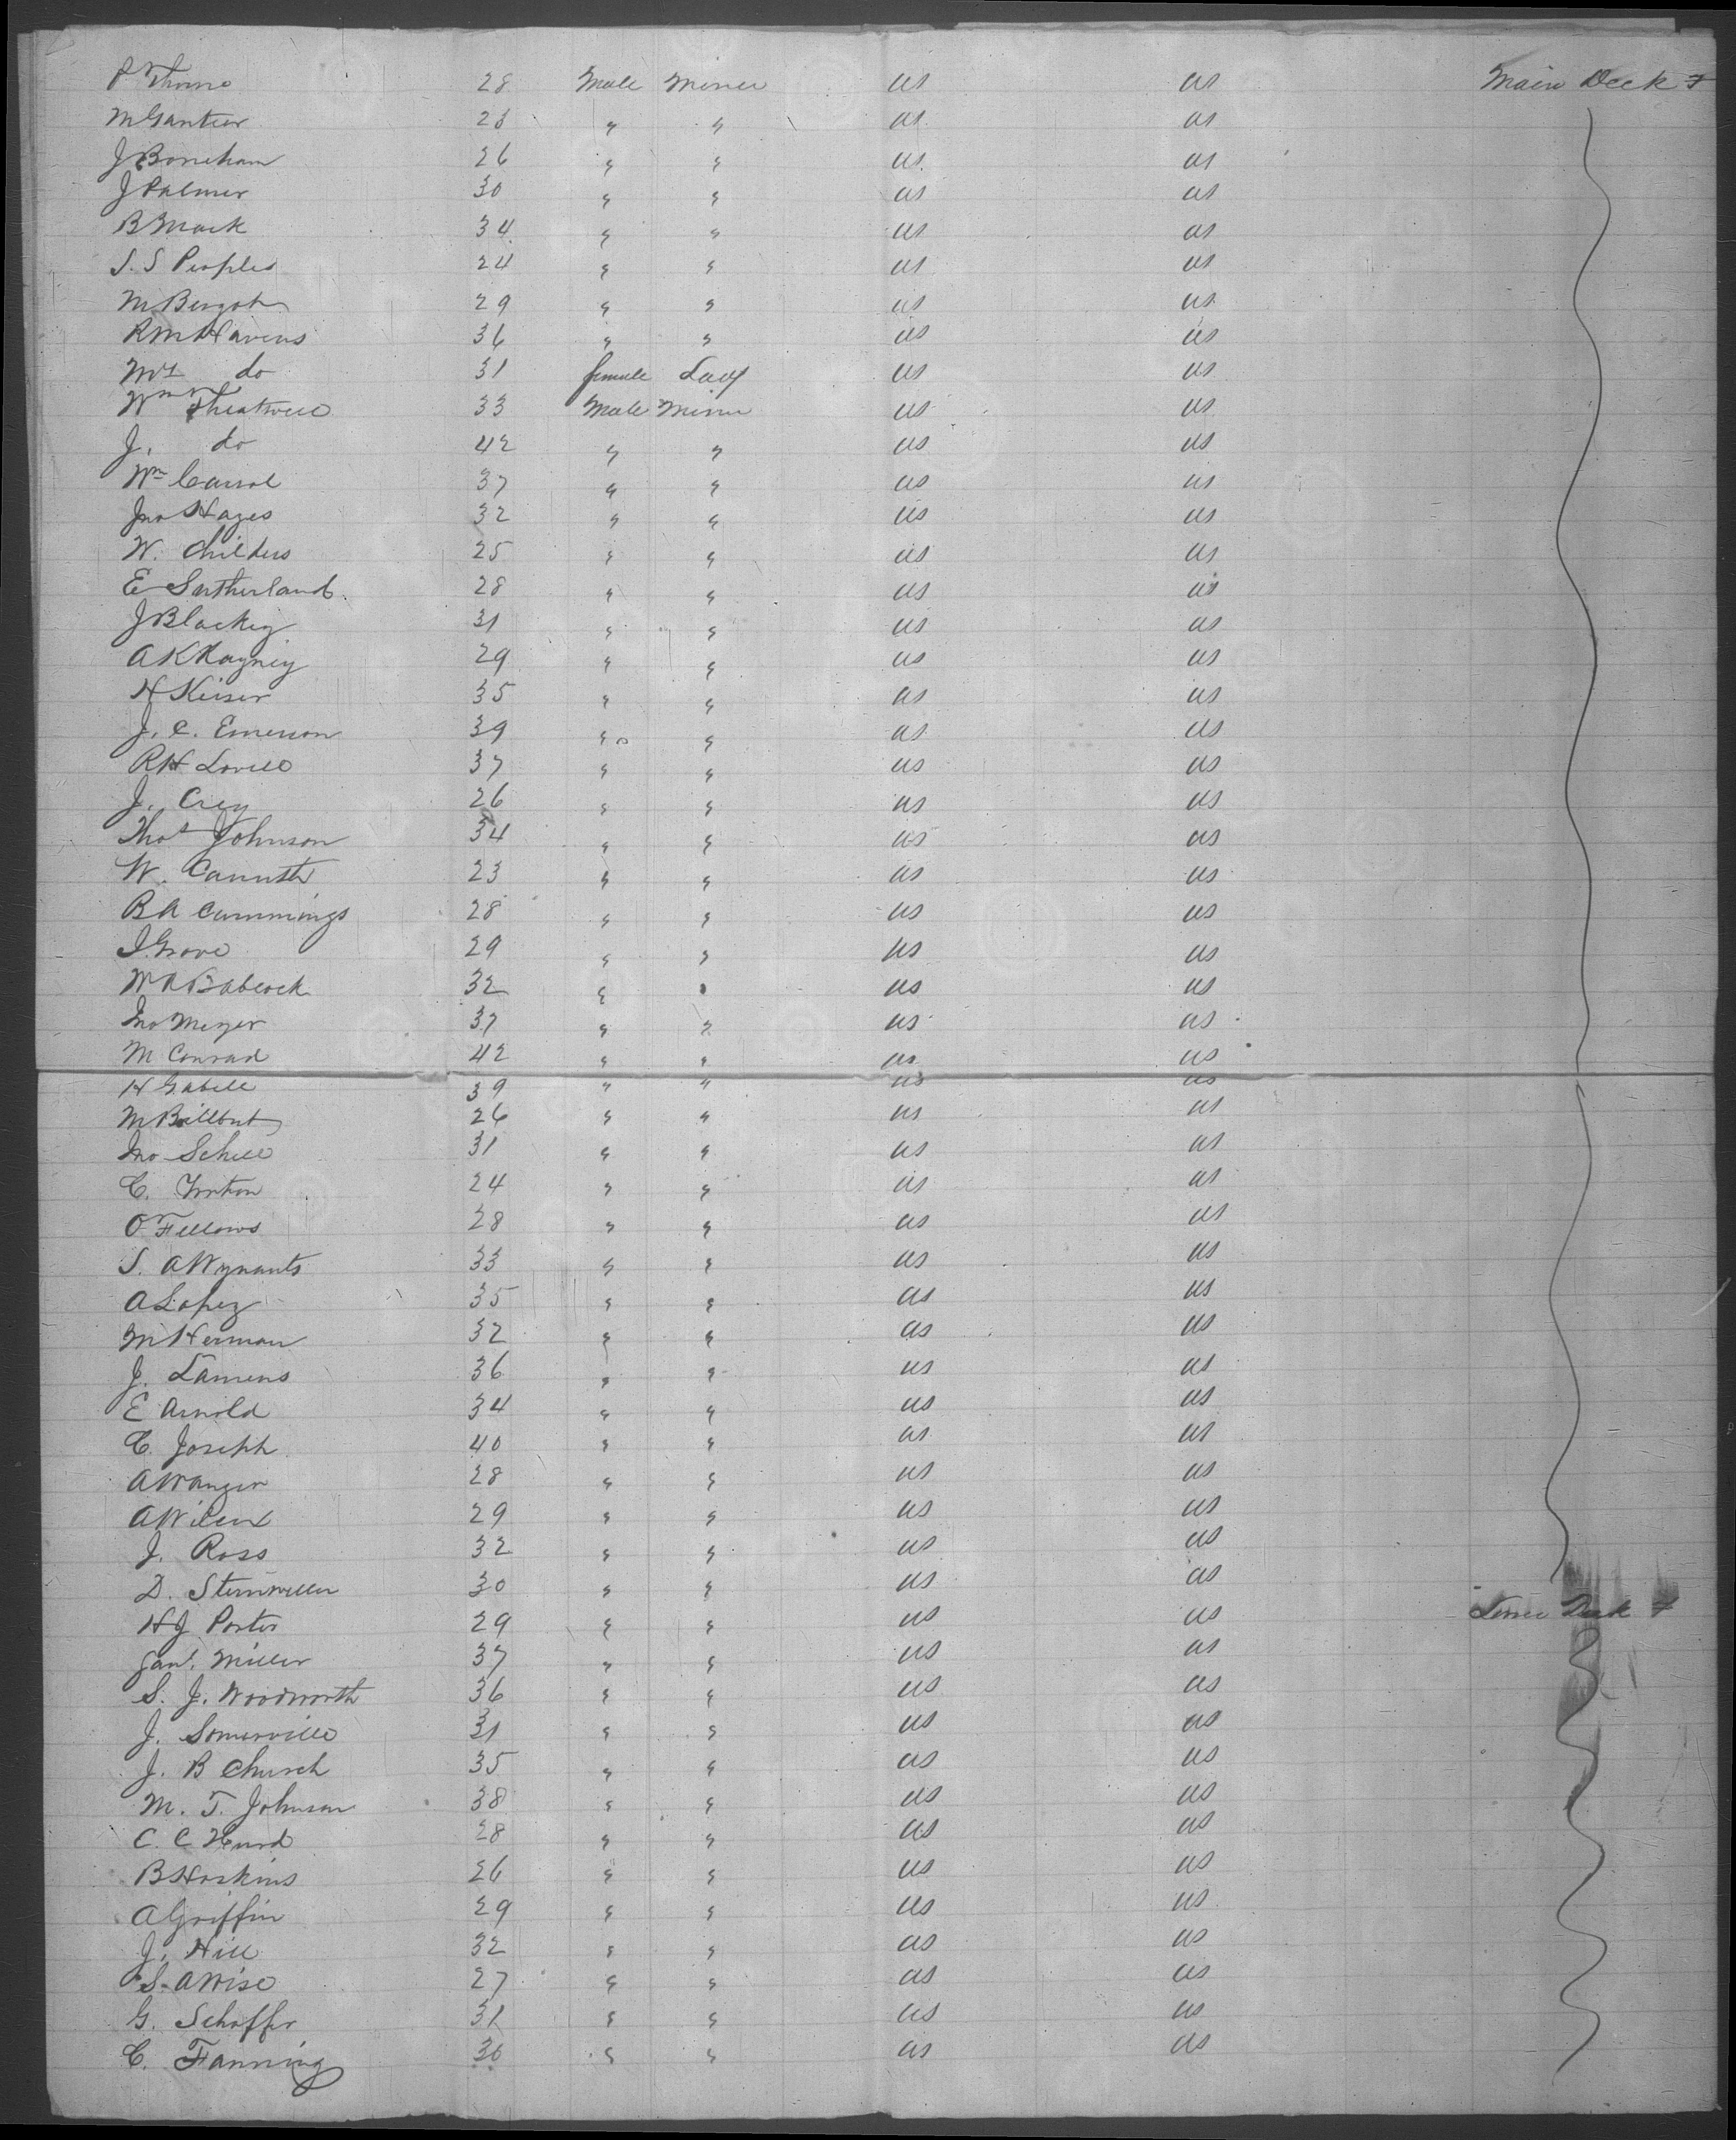 P Thorne 28 Male Miner US US Main Deck F
M Gantier 23 " " US US
J Boncham 26 " " US US
J Palmer 30 " " US US
B Mack 34 " " US US
S. S Peoples 24 " " US US
M Bergot 29 " " US US
R M Havens 36 " " US US
Mrs do 31 female Lady US US
Wm Threatwell 33 Male Miner US US
J. do 42 " " US US
Wm Carrol 37 " " US US
Jno Hayes 32 " " US US
W. Childers 25 " " US US
E Sutherland 28 " " US US
J Blackey 31 " " US US
A K 29 " " US US
H Keiser 35 " " US US
J. C. Emerson 39 " " US US
R H Lovell 37 " " US US
J. Crey 26 " " US US
Thos Johnson 34 " " US US
W. Canuth 23 " " US US
B A Cummings 28 " " US US
I. Grove 29 " " US US
W A Babcock 32 " " US US
Jno Meyer 37 " " US US
M Conrad 42 " " US US
H Gabell 39 " " US US
M 26 " " US US
Jno Schell 31 " " US US
C. 24 " " US US
O. Fellows 28 " " US US
S. A Wynants 33 " " US US
A Lopez 35 " " US US
M Herman 32 " " US US
J. Lamens 36 " " US US
E Arnold 34 " " US US
C. Joseph 40 " " US US
A Wanger 28 " " US US
A 29 " " US US
J. Ross 32 " " US US
D. 30 " " US US
H J Porter 29 " " US US Lower Deck F
Jas. Miller 37 " " US US
S. J. Woodworth 36 " " US US
J. Somerville 31 " " US US
J. B Church 35 " " US US
M. T. Johnson 38 " " US US
C. C Hurd 28 " " US US
B Hoskins 26 " " US US
A Griffin 29 " " US US
J. Hill 32 " " US US
S. A Wise 27 " " US US
G. Schaffer 31 " " US US
C. Fanning 30 " " US US